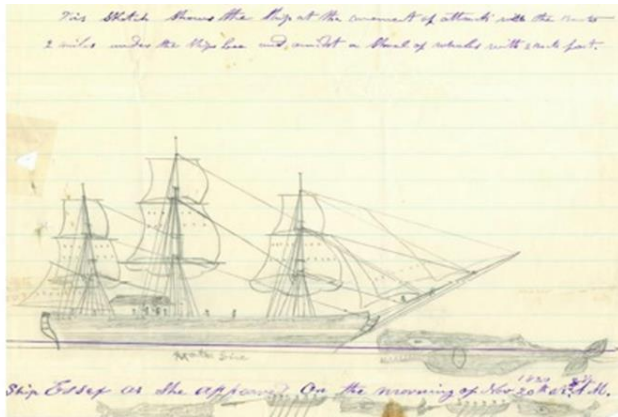 This Sketch shows the Ship at the moment of attack with the boats
2 miles under the Ships Lee and amidst a Shoal of whales with 2 boats fast.
Water Line
Ship Essex as She appeared On the morning of Nov 20th A.M.
1820